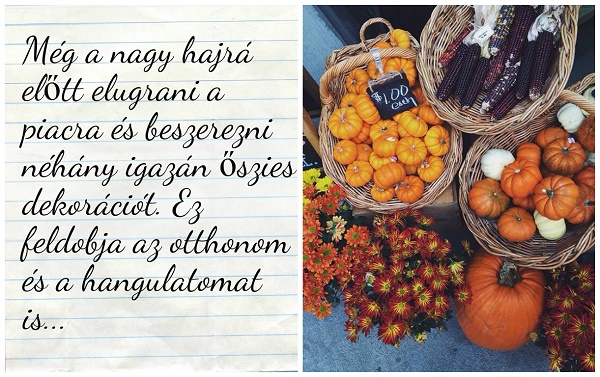 Még a nagy hajrá
előtt elugrani a
piacra és beszerezni
néhány igazán őszies
dekorációt. Ez
feldobja az otthonom
és a hangulatomat
is...
$1.00
each